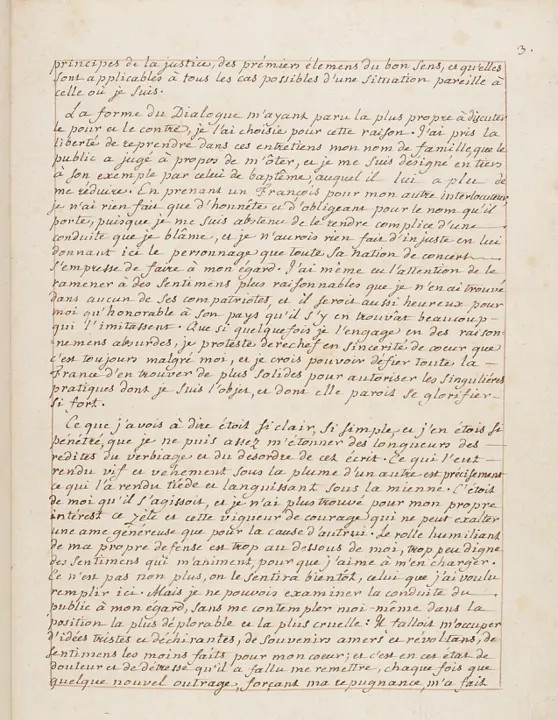 3.
principes de la justice, des prémiers élemens du bon sens, et qu'elles
sont applicables à tous les cas possibles d'une situation pareille à
celle où je suis.
La forme du Dialogue m'ayant paru la plus propre à discuter
le pour et le contre, je l'ai choisie pour cette raison. J'ai pris la
liberté de reprendre dans ces entretiens mon nom de famille, que le
public a jugé à propos de m'ôter, et je me suis désigné en tiers
à son exemple par celui de baptême, auquel il lui a plu de
me réduire. En prenant un François pour mon autre interlocuteur,
je n'ai rien fait que d'honnête et d'obligeant pour le nom qu'il
porte, puisque je me suis abstenu de le rendre complice d'une
conduite que je blâme, et je n'aurois rien fait d'injuste en lui
donnant ici le personnage que toute sa nation de concert
s'empresse de faire à mon égard. J'ai même eu l'attention de le
ramener à des sentimens plus raisonnables que je n'en ai trouvé
dans aucun de ses compatriotes, et il seroit aussi heureux pour
moi qu'honorable à son pays qu'il s'y en trouvât beaucoup
qui l'imitassent. Que si quelquefois je l'engage en des raison-
nemens absurdes, je proteste derechef en sincérité de cœur que
c'est toujours malgré moi, et je crois pouvoir défier toute la
France d'en trouver de plus solides pour autoriser les singuliéres
pratiques dont je suis l'objet, et dont elle paroit se glorifier
si fort.
Ce que j'avois à dire étoit si clair, si simple, et j'en étois si
pénétré, que je ne puis assez m'étonner des longueurs des
redites du verbiage et du desordre de cet écrit. Ce qui l'eut
rendu vif et véhément sous la plume d'un autre est précisement
ce qui l'a rendu tiéde et languissant sous la mienne. C'étoit
de moi qu'il s'agissoit, et je n'ai plus trouvé pour mon propre
intérest ce zéle et cette vigueur de courage qui ne peut exalter
une ame généreuse que pour la cause d'autrui. Le rolle humiliant
de ma propre défense est trop au dessous de moi, trop peu digne
des sentimens qui m'animent, pour que j'aime à m'en charger.
Ce n'est pas non plus, on le sentira bientot, celui que j'ai voulu
remplir ici. Mais je ne pouvois examiner la conduite du
public à mon égard, sans me contempler moi-même dans la
position la plus déplorable et la plus cruelle: Il falloit m'occuper
d'idées tristes et déchirantes, de souvenirs amers et révoltans, de
sentimens les moins faits pour mon cœur; et c'est en cet état de
douleur et de détresse qu'il a fallu me remettre, chaque fois que
quelque nouvel outrage, forçant ma repugnance, m'a fait